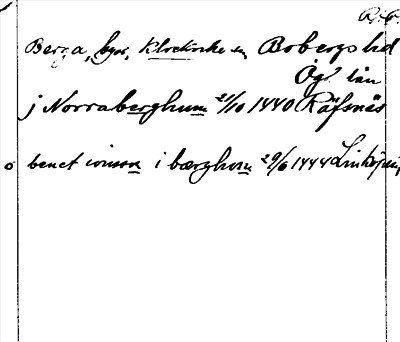 R. 6.
Berga, byar, Klockrike sn Bobergs hd
Ög. län
j Norraberghum 21/10 1440 Räfsnäs
o benct ionson i bærghom 29/6 1444 Linköping